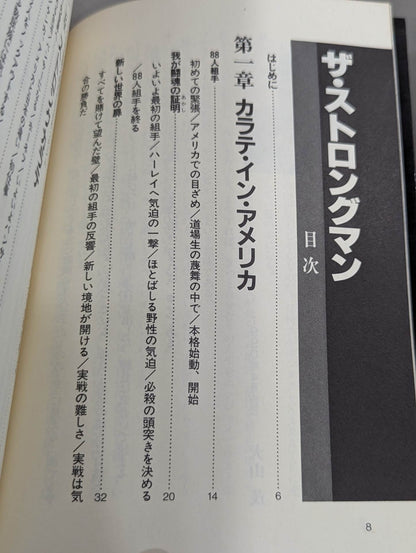 ザ・ストロングマン
目次
はじめに
6
第一章 カラテ・イン・アメリカ
88人組手
14
初めての緊張/アメリカでの目ざめ/道場生の蔑舞の中で/本格始動、開始
我が闘魂の証明
あかし
20
いよいよ最初の組手/ハーレイへ気迫の一撃/ほとばしる野性の気迫/必殺の頭突きを決める
/88人組手を終る
新しい世界の扉
32
すべてを賭けて望んだ壁/最初の組手の反響/新しい境地が開ける/実戦の難しさ/実戦は気
合の勝負だ
8